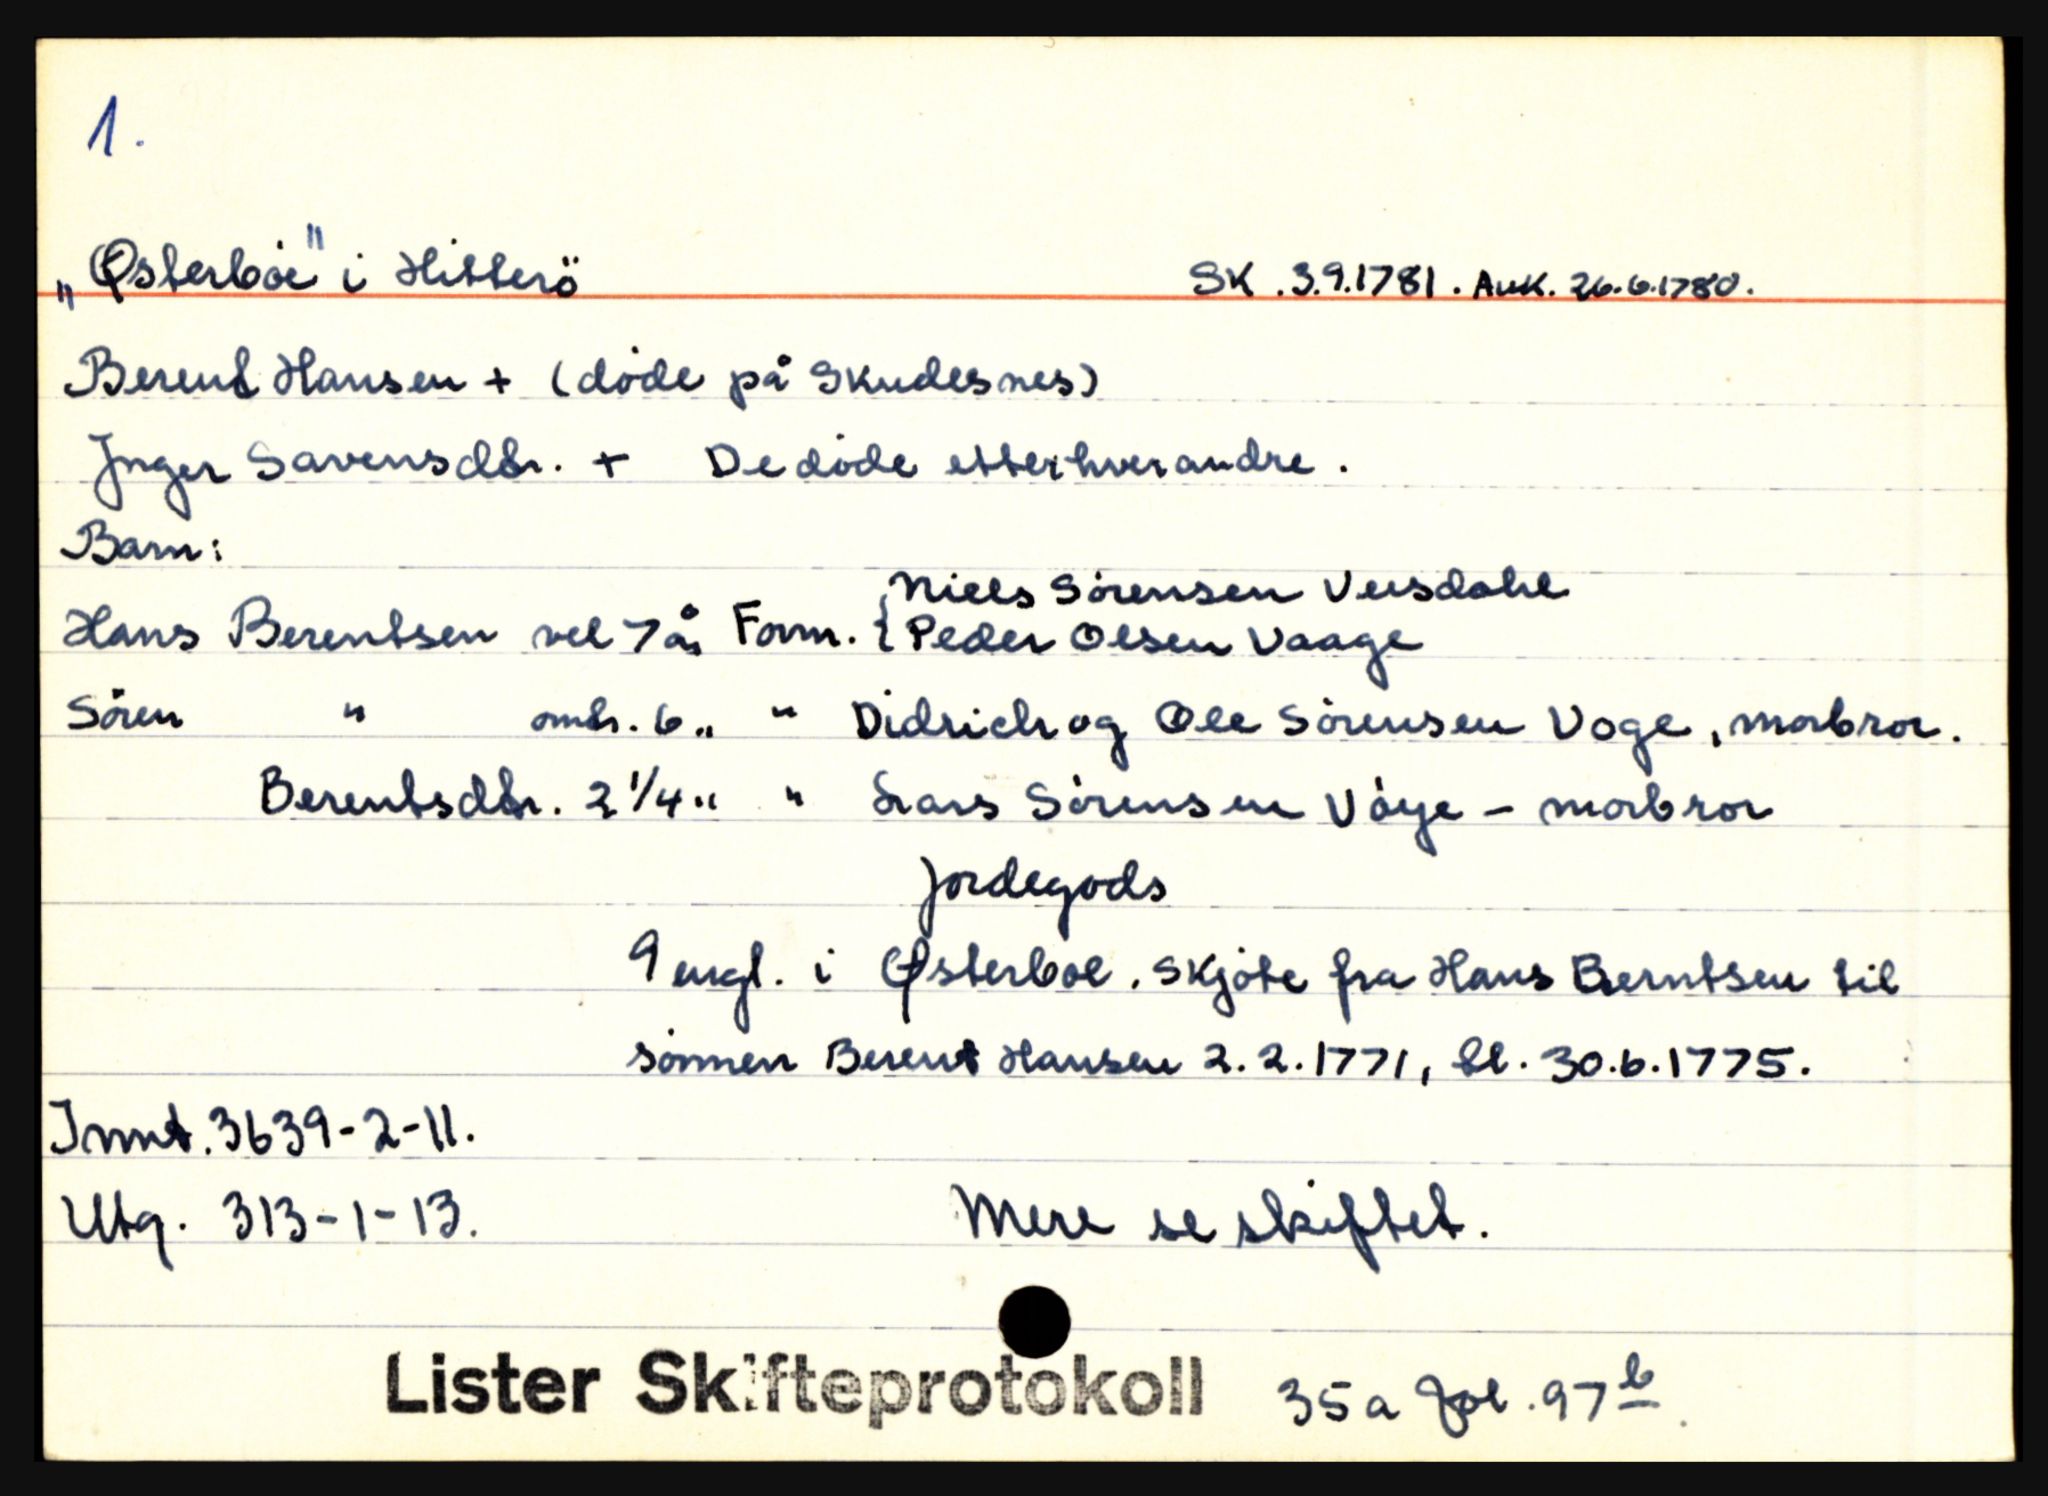 1.
„Østerböe" i Hitterö SK. 3.9.1781. Auk. 26.6.1780.
Berent Hansen + (döde på Skudesnes)
Inger Savensdtr. + De döde etterhverandre.
Barn:
Niels Sörensen Veisdahl
Hans Berentsen vel 7 år Form. { Peder Olsen Vaage
Sören " omtr. 6 „ " Didrich og Ole Sörensen Voge, morbror.
Berentsdtr. 2 1/4 " " Lars Sörensen Våge - morbror
Jordegods
9 engl. i Østerboe. Skjöte fra Hans Berntsen til
sönnen Berent Hansen 2.2.1771, tl. 30.6.1775.
Innt. 3639-2-11.
Utg. 313-1-13. Mere se skiftet.
Lister Skifteprotokoll 35a Fol. 97 b.